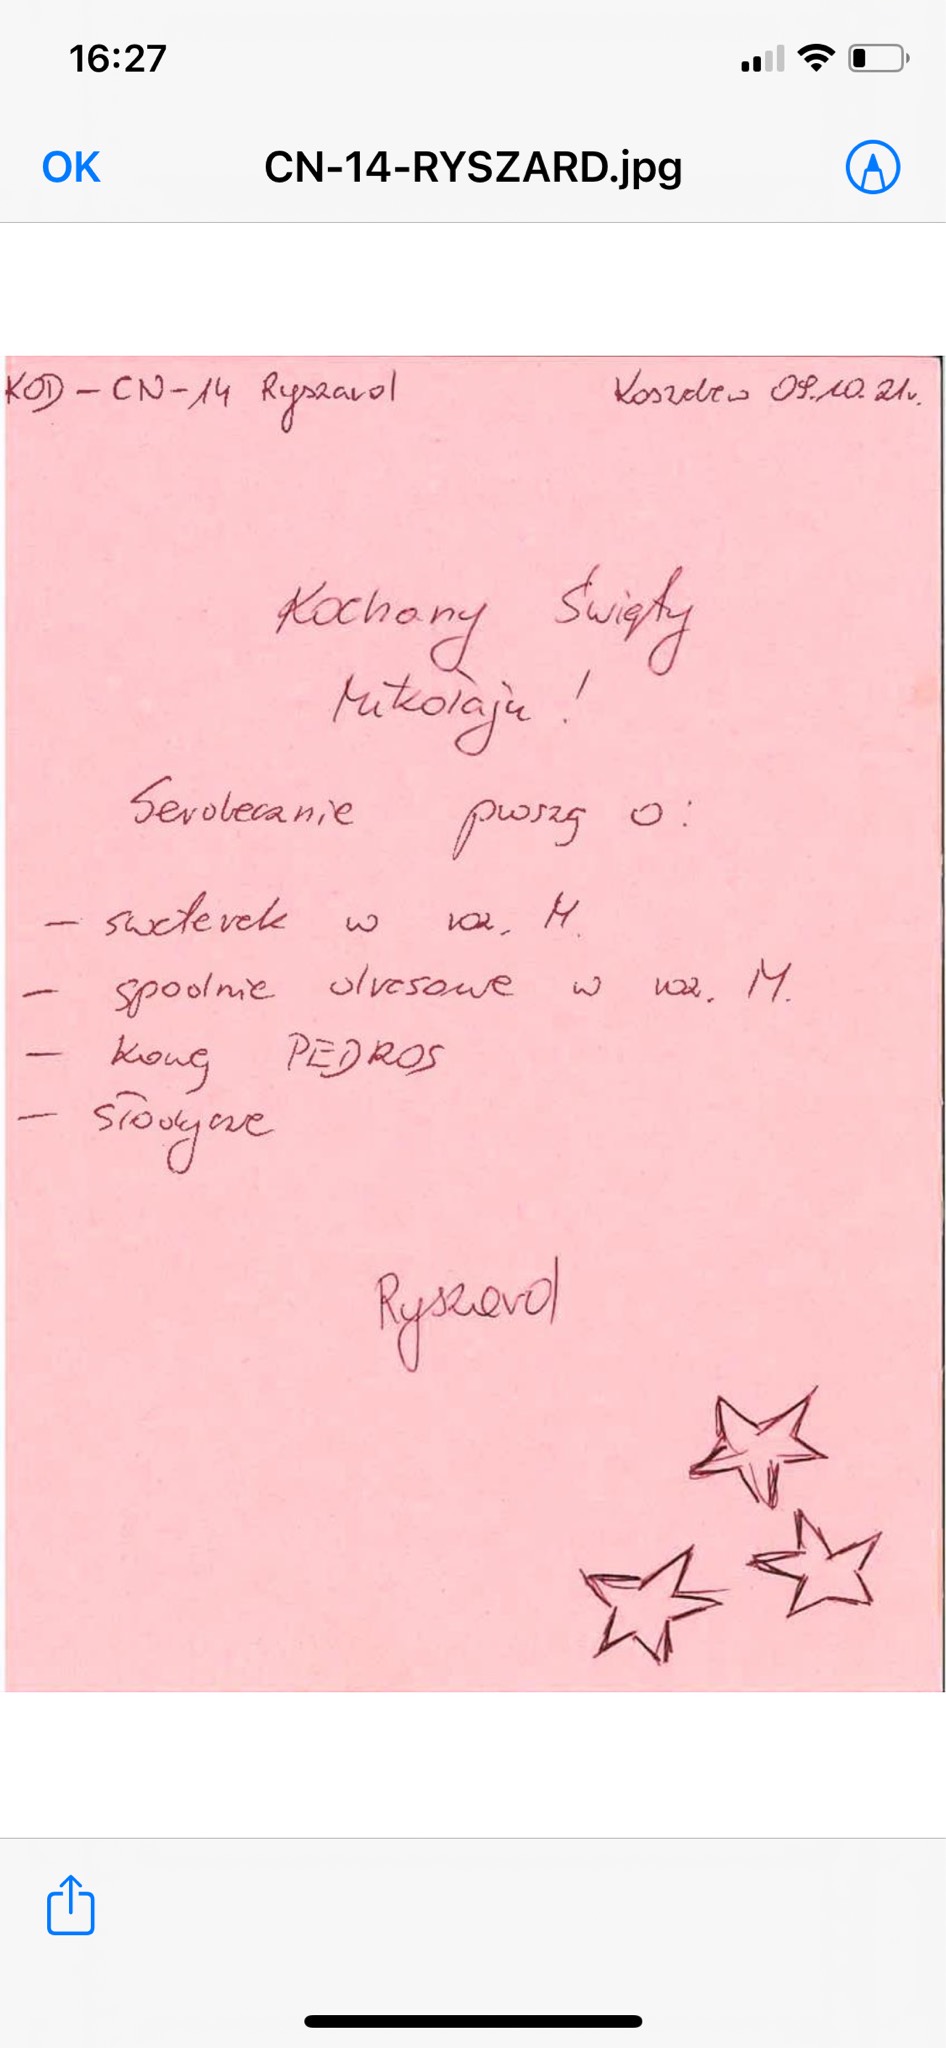 16:27
OK CN-14-RYSZARD.jpg
KOD - CN-14 Ryszard Koszelew 09.10.21r.
Kochany Święty
Mikołaju!
Serdecznie proszę o:
- sweterek w roz. M.
- spodnie dresowe w roz. M.
- kawę PEDROS
- słodycze
Ryszard